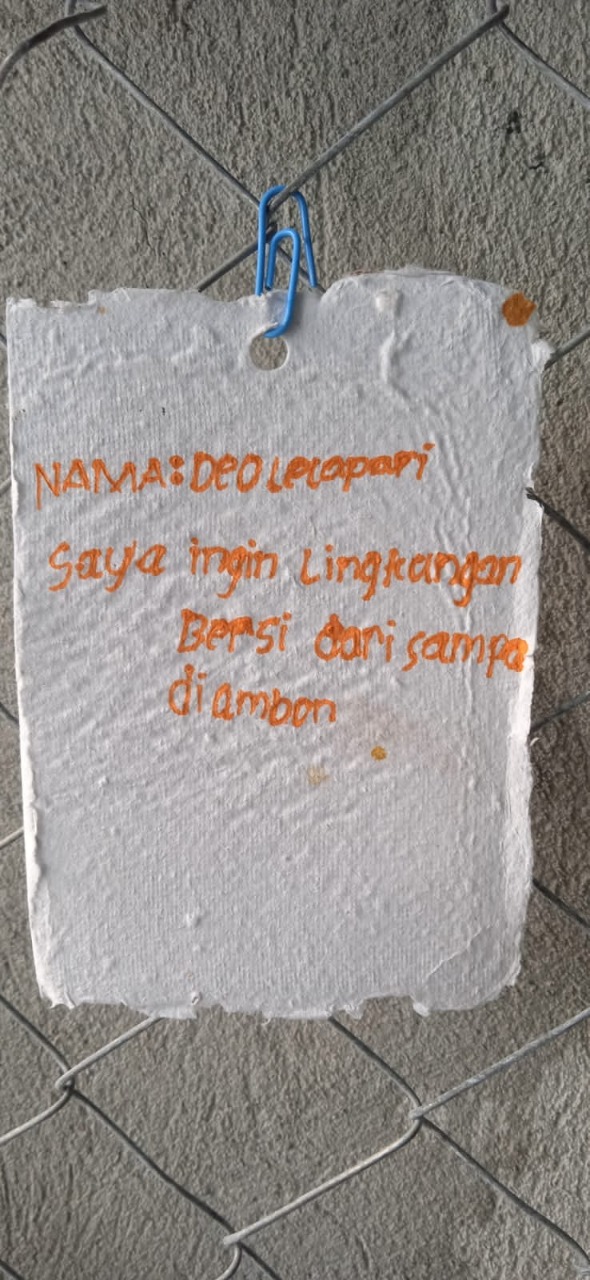 NAMA: Deo Lecopari
Saya ingin Lingkangan
Bersi dari sampa
di ambon